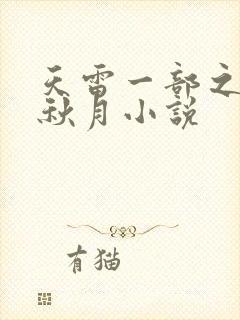 天雷一部之
秋月小説
有猫